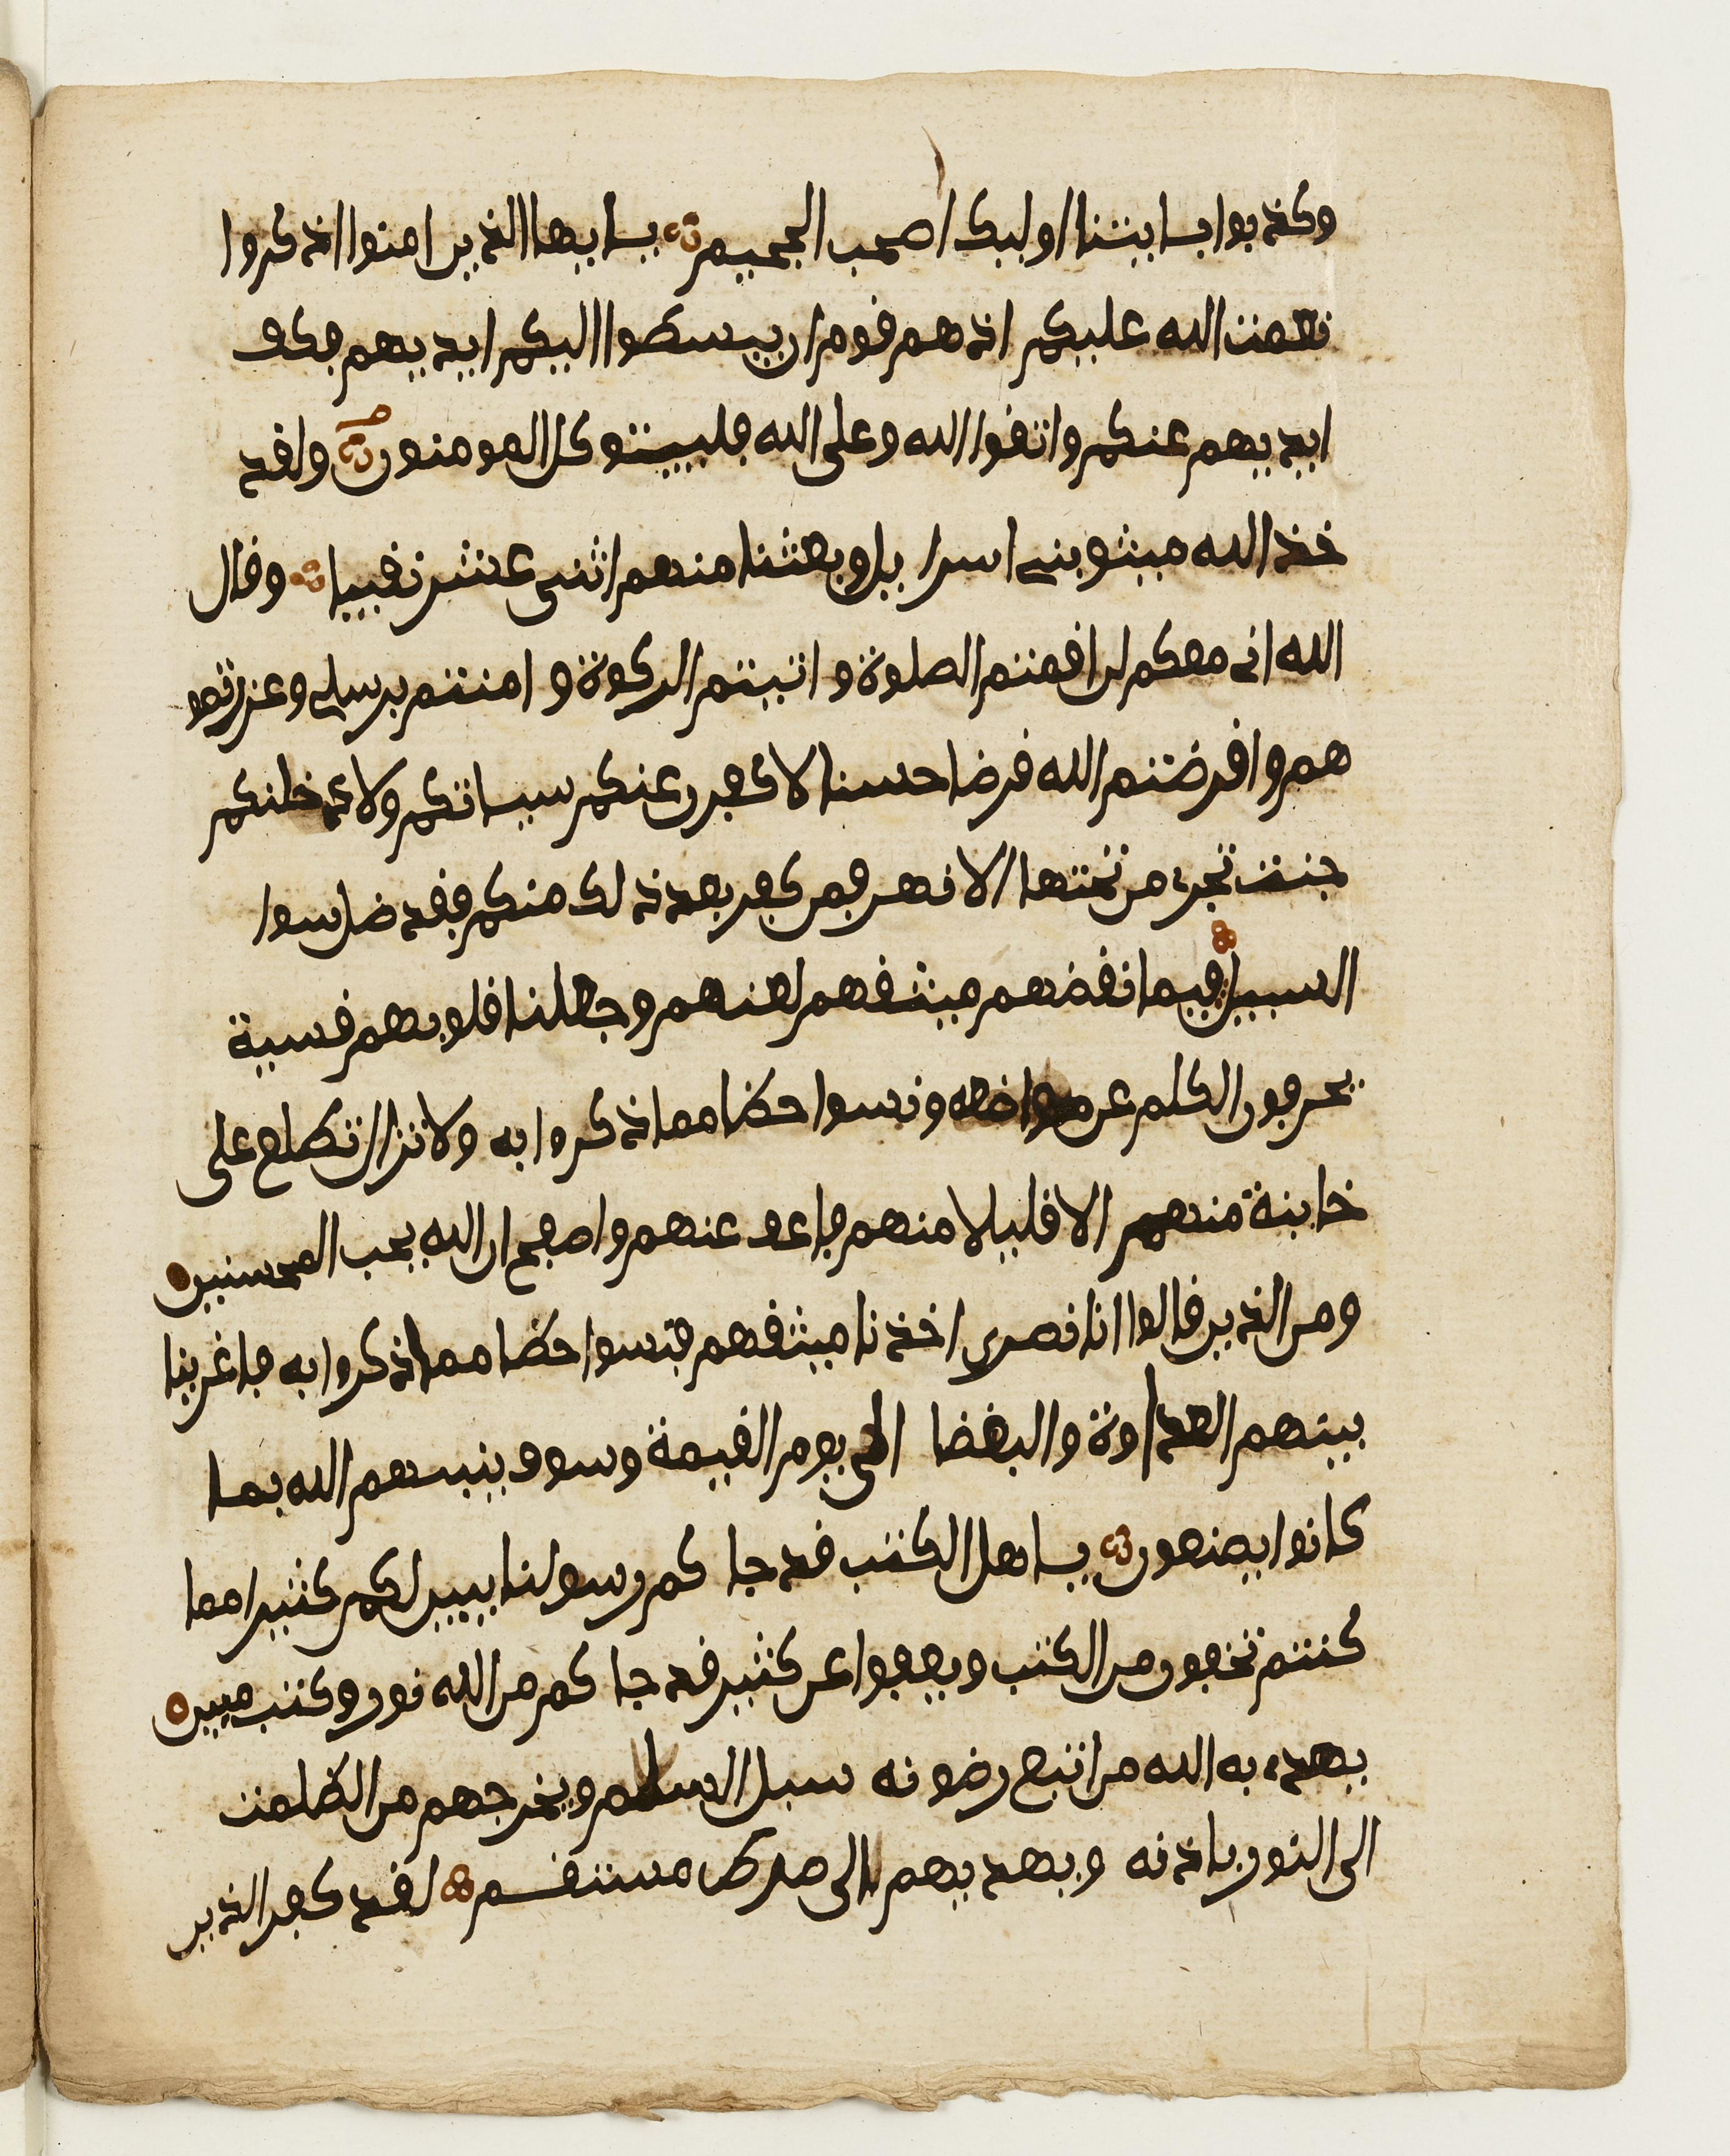 وكذبوا بـايتنا اوليك اصحب الجحيم يـايها الذين امنوا اذكروا
نعمت الله عليكم اذ هم قوم ان يبسطوا اليكم ايديهم فكف
ايديهم عنكم واتقوا الله وعلى الله فليتوكل المومنون ولقد
خذ الله ميثق بني اسرايل وبعثنا منهم اثني عشر نقيبا وقال
الله اني معكم لين اقمتم الصلوة واتيتم الزكوة وامنتم برسلي وعزرتمو
هم واقرضتم الله قرضا حسنا لاكفرن عنكم سياتكم ولادخلنكم
جنت تجري من تحتها الانهر فمن كفر بعد ذلك منكم فقد ضل سوا
السبيل فبما نقضهم ميثقهم لعنهم وجعلنا قلوبهم قسية
يحرفون الكلم عن مواضعه ونسوا حظا مما ذكروا به ولا تزال تطلع على
خاينة منهم الا قليلا منهم فاعف عنهم واصفح ان الله يحب المحسنين
ومن الذين قالوا انا نصرى اخذنا ميثقهم فنسوا حظا مما ذكروا به فاغرينا
بينهم العداوة والبغضا الى يوم القيمة وسوف ينبيهم الله بما
كانوا يصنعون يـاهل الكتب قد جا كم رسولنا يبين لكم كثيرا مما
كنتم تخفون من الكتب ويعفوا عن كثير قد جا كم من الله نور وكتب مبين
يهدي به الله من اتبع رضونه سبل السلم ويخرجهم من الظلمت
الى النور باذنه ويهديهم الى صرط مستقيم لقد كفر الذين